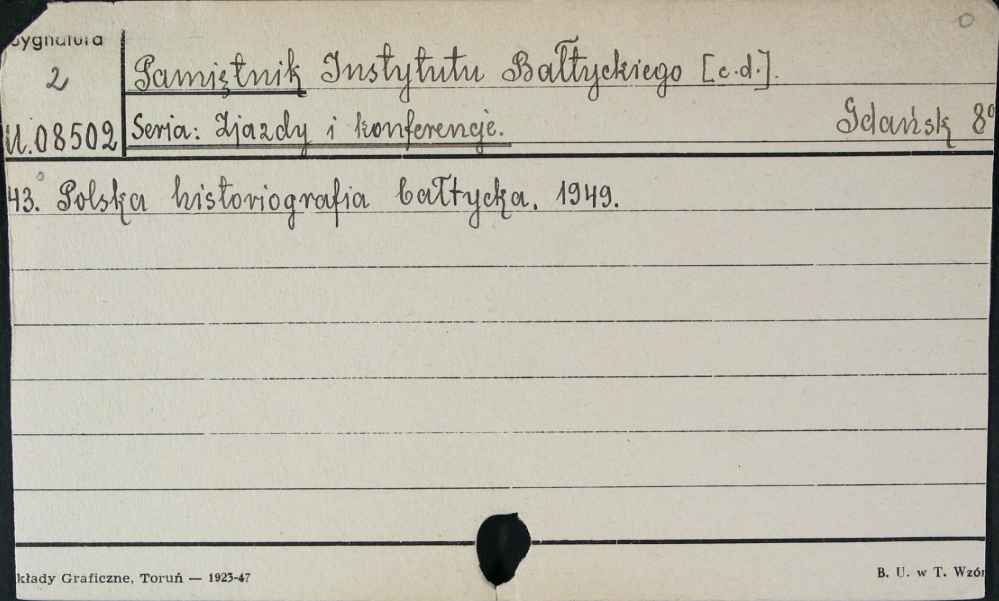 Sygnatura
2
Pamiętnik Instytutu Bałtyckiego [c.d.].
U.08502
Seria: Zjazdy i konferencje.
Gdańsk 8°
43. Polska historiografia bałtycka. 1949.
kłady Graficzne, Toruń — 1923-47
B. U. w T. Wzór